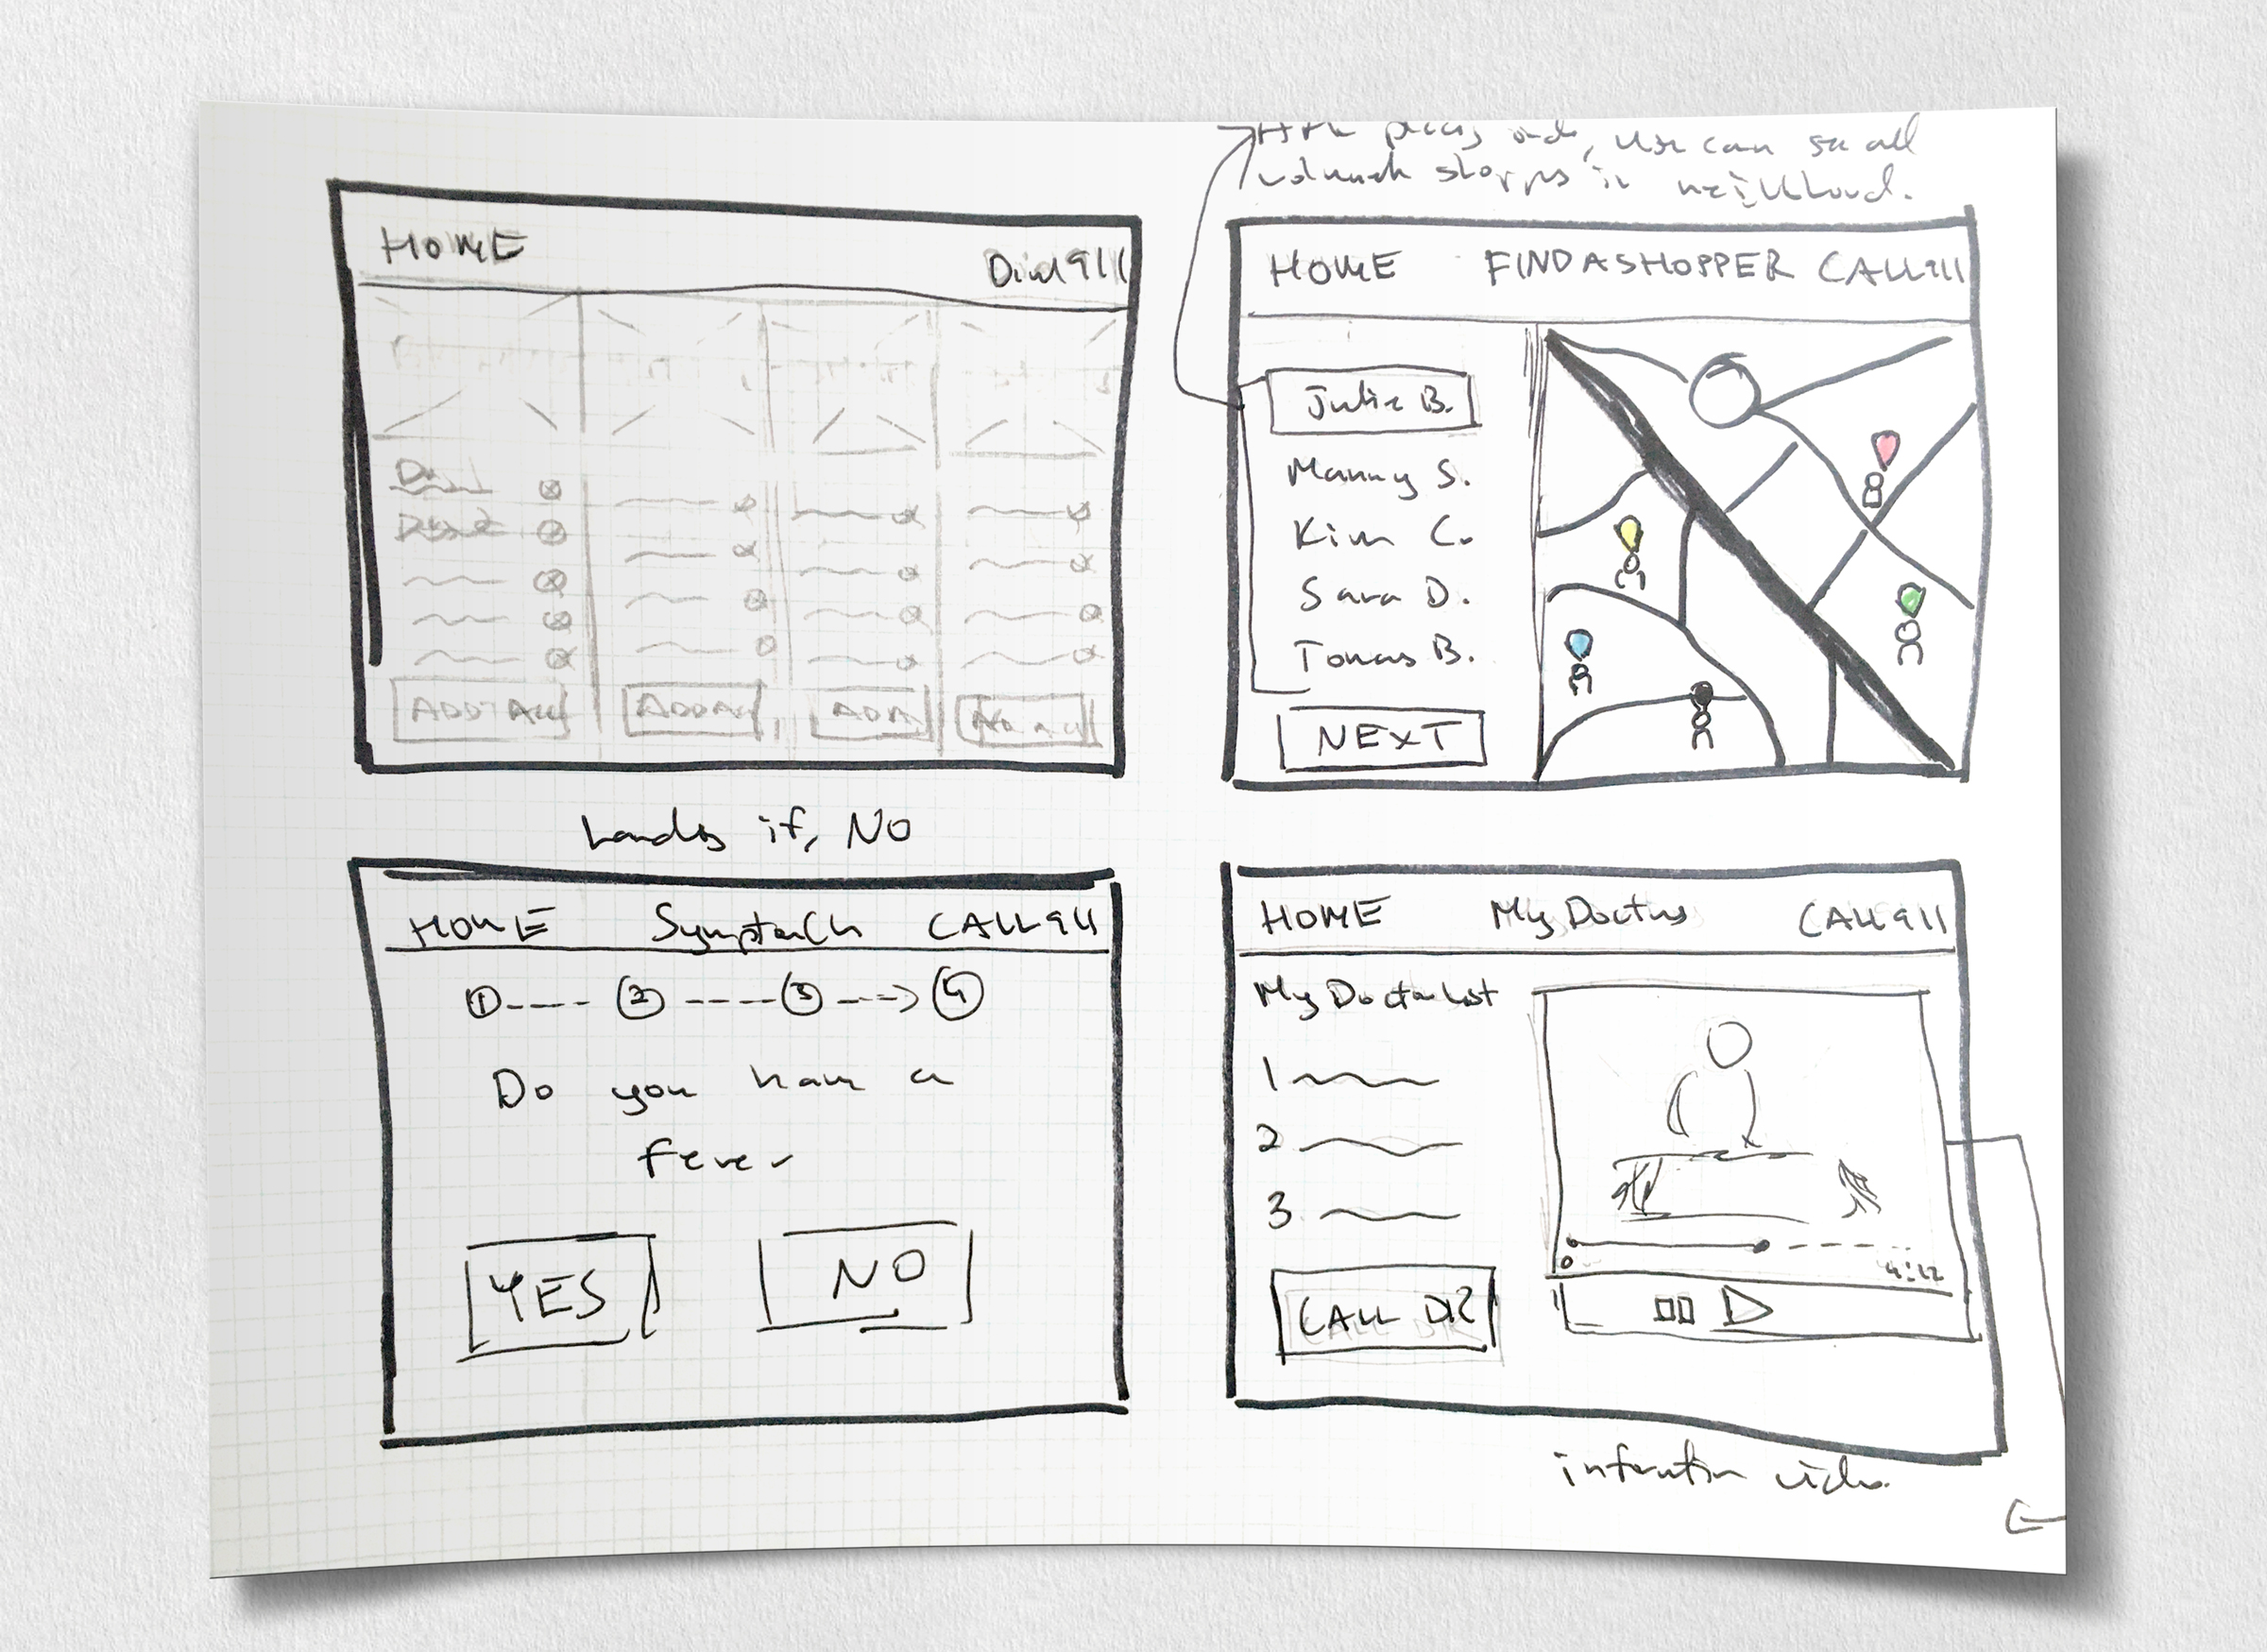 user can see all
in
HOME
Dial 911
ADD ALL
ADD ALL
ADD A
HOME FIND A SHOPPER CALL 911
Julie B.
Manny S.
Kim C.
Sara D.
Tomas B.
NEXT
Lands if, NO
HOME CALL 911
1 2 3 4
Do you have a
fever
YES NO
HOME My Doctors CALL 911
My Doctor List
1
2
3
0 4:12
CALL DR
video